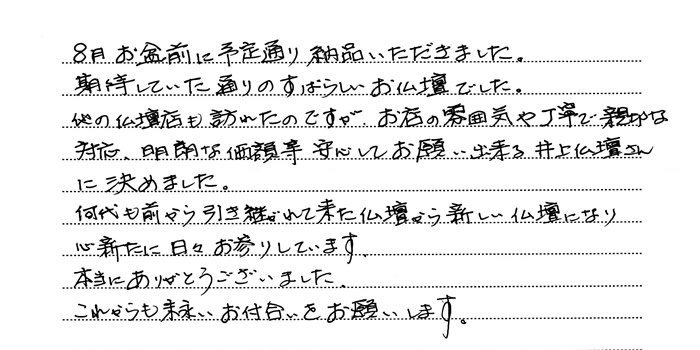 8月お盆前に予定通り納品いただきました。
期待していた通りのすばらしいお仏壇でした。
他の仏壇店も訪れたのですが、お店の雰囲気や丁寧で親切な
対応、明朗な価額等安心してお願い出来る井上仏壇さん
に決めました。
何代も前から引き継がれて来た仏壇から新しい仏壇になり
心新たに日々お参りしています。
本当にありがとうございました。
これからも末永いお付合いをお願いします。